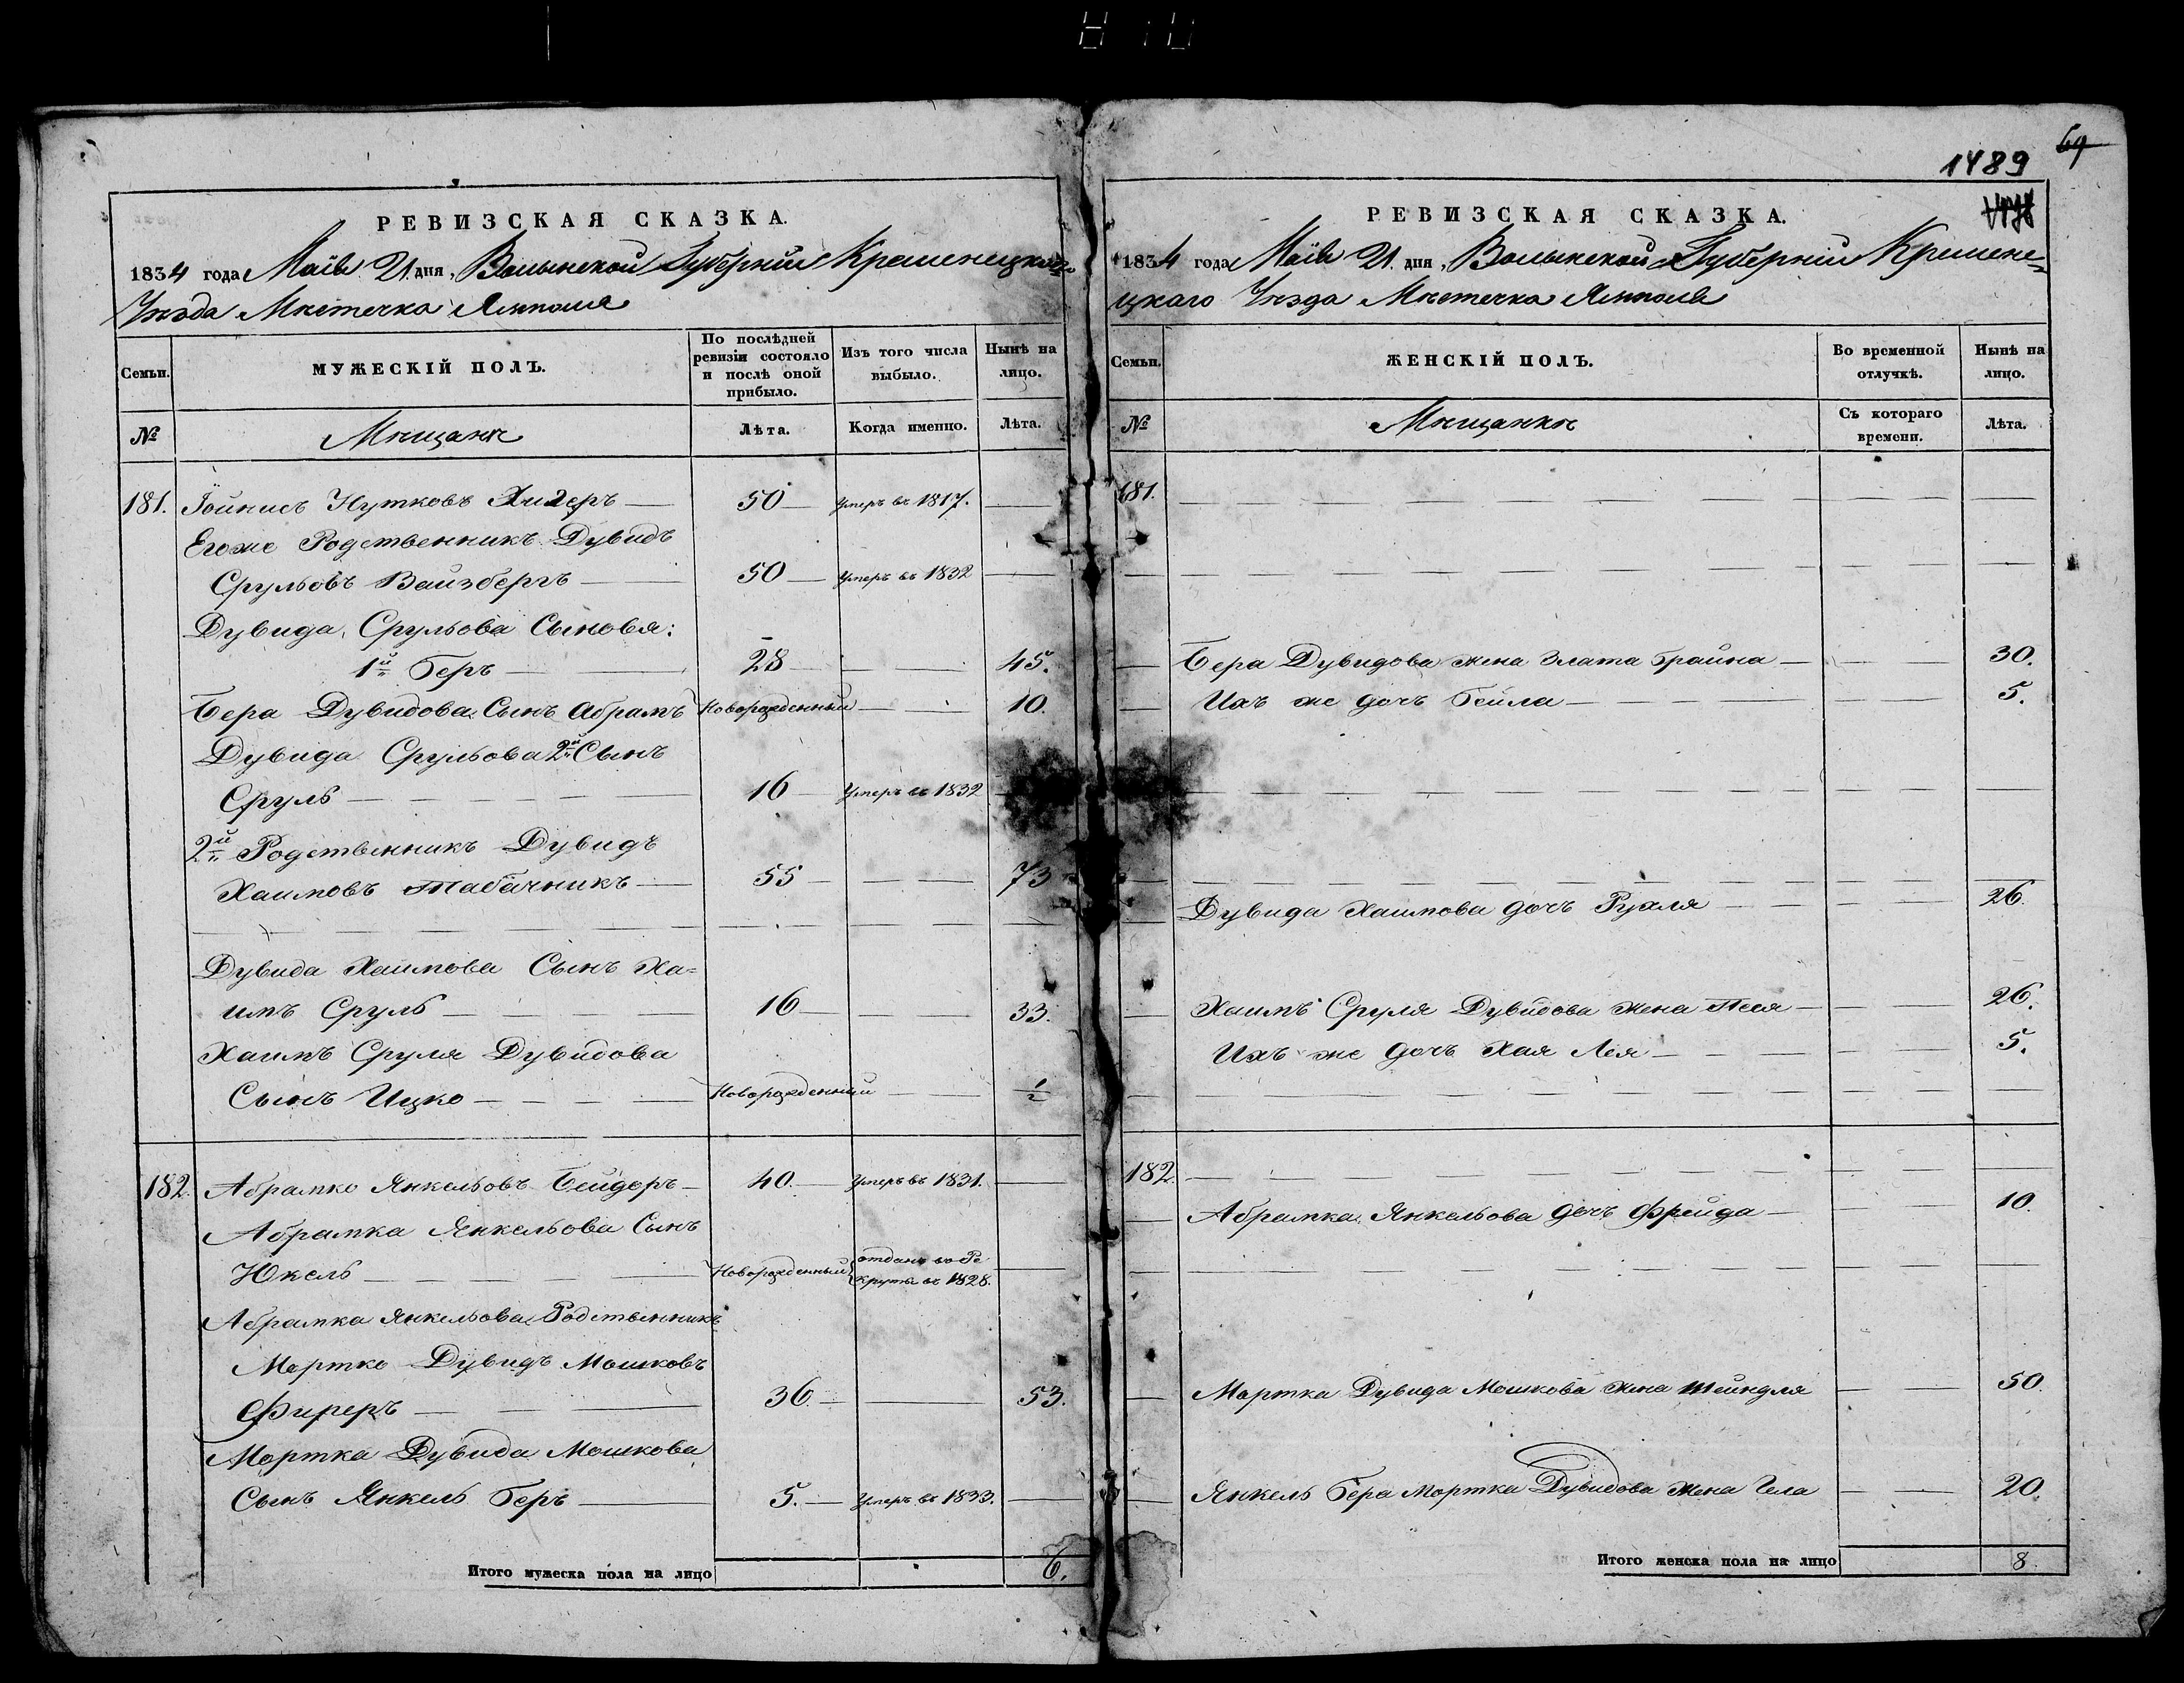 1489
69
РЕВИЗСКАЯ СКАЗКА.
1834 года Маія 21 дня, Волынской Губерніи Кременецкаго
Уѣзда Мѣстечка Ямполя
Семьи.
МУЖЕСКІЙ ПОЛЪ.
По послѣдней ревизіи состояло и послѣ оной прибыло.
Изъ того числа выбыло.
Нынѣ на лицо.
№
Мѣщанѣ
Лѣта.
Когда именно.
Лѣта.
181. Іойнисъ Нутковъ 50 Умеръ въ 1817.
Егоже Родственникъ Дувидъ
Срульовъ Вайзбергъ 50 Умеръ въ 1832
Дувида Срульова Сыновья:
1й Беръ 28 45.
Бера Дувидова Сынъ Абрамъ Новорожденный 10.
Дувида Срульова 2й Сынъ
Сруль 16 Умеръ въ 1832
2й Родственникъ Дувидъ
Хаимовъ Табачникъ 55 73
Дувида Хаимова Сынъ Ха=
имъ Сруль 16 33.
Хаимъ Сруля Дувидова
Сынъ Ицко Новорожденный ½
182. Абрамко Янкельовъ Бейдеръ 40. Умеръ въ 1831.
Абрамка Янкельова Сынъ
Юкель Новорожденный отданъ въ Ре
круты въ 1828.
Абрамка Янкельова Родственникъ
Мортко Дувидъ Мошковъ
Фиреръ 36. 53.
Мортка Дувида Мошкова
Сынъ Янкель Беръ 5. Умеръ въ 1833.
Итого мужеска пола на лицо 6.
РЕВИЗСКАЯ СКАЗКА.
1834 года Маія 21 дня, Волынской Губерніи Кремене=
цкаго Уѣзда Мѣстечка Ямполя
Семьи.
ЖЕНСКІЙ ПОЛЪ.
Во временной отлучкѣ.
Нынѣ на лицо.
№
Мѣщанки
Съ котораго времени.
Лѣта.
181.
Бера Дувидова жена Злата Брайна 30.
Ихъ же дочъ Бейла 5.
Дувида Хаимова дочъ Рухля 26.
Хаимъ Сруля Дувидова жена Песя 26.
Ихъ же дочъ Хая Лея 5.
182.
Абрамка Янкельова дочъ Фрейда 10.
Мортка Дувида Мошкова жена Шейндля 50.
Янкель Бера Мортка Дувидова жена Гела 20.
Итого женска пола на лицо 8.